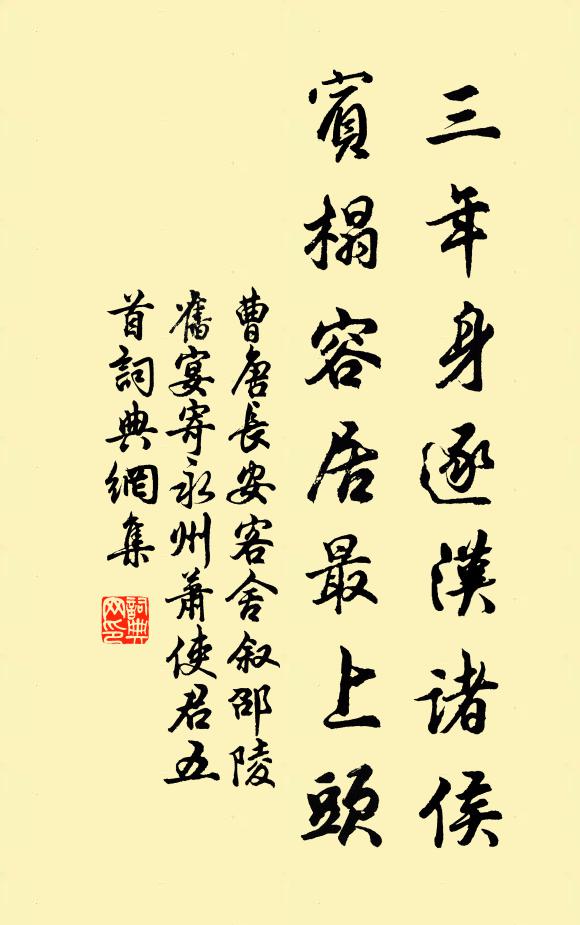 三年身逐漢諸侯
賓榻容居最上頭
曹唐長安客舍叙邵陵
舊宴寄永州蕭使君五
首詞典網集
詞典
网印